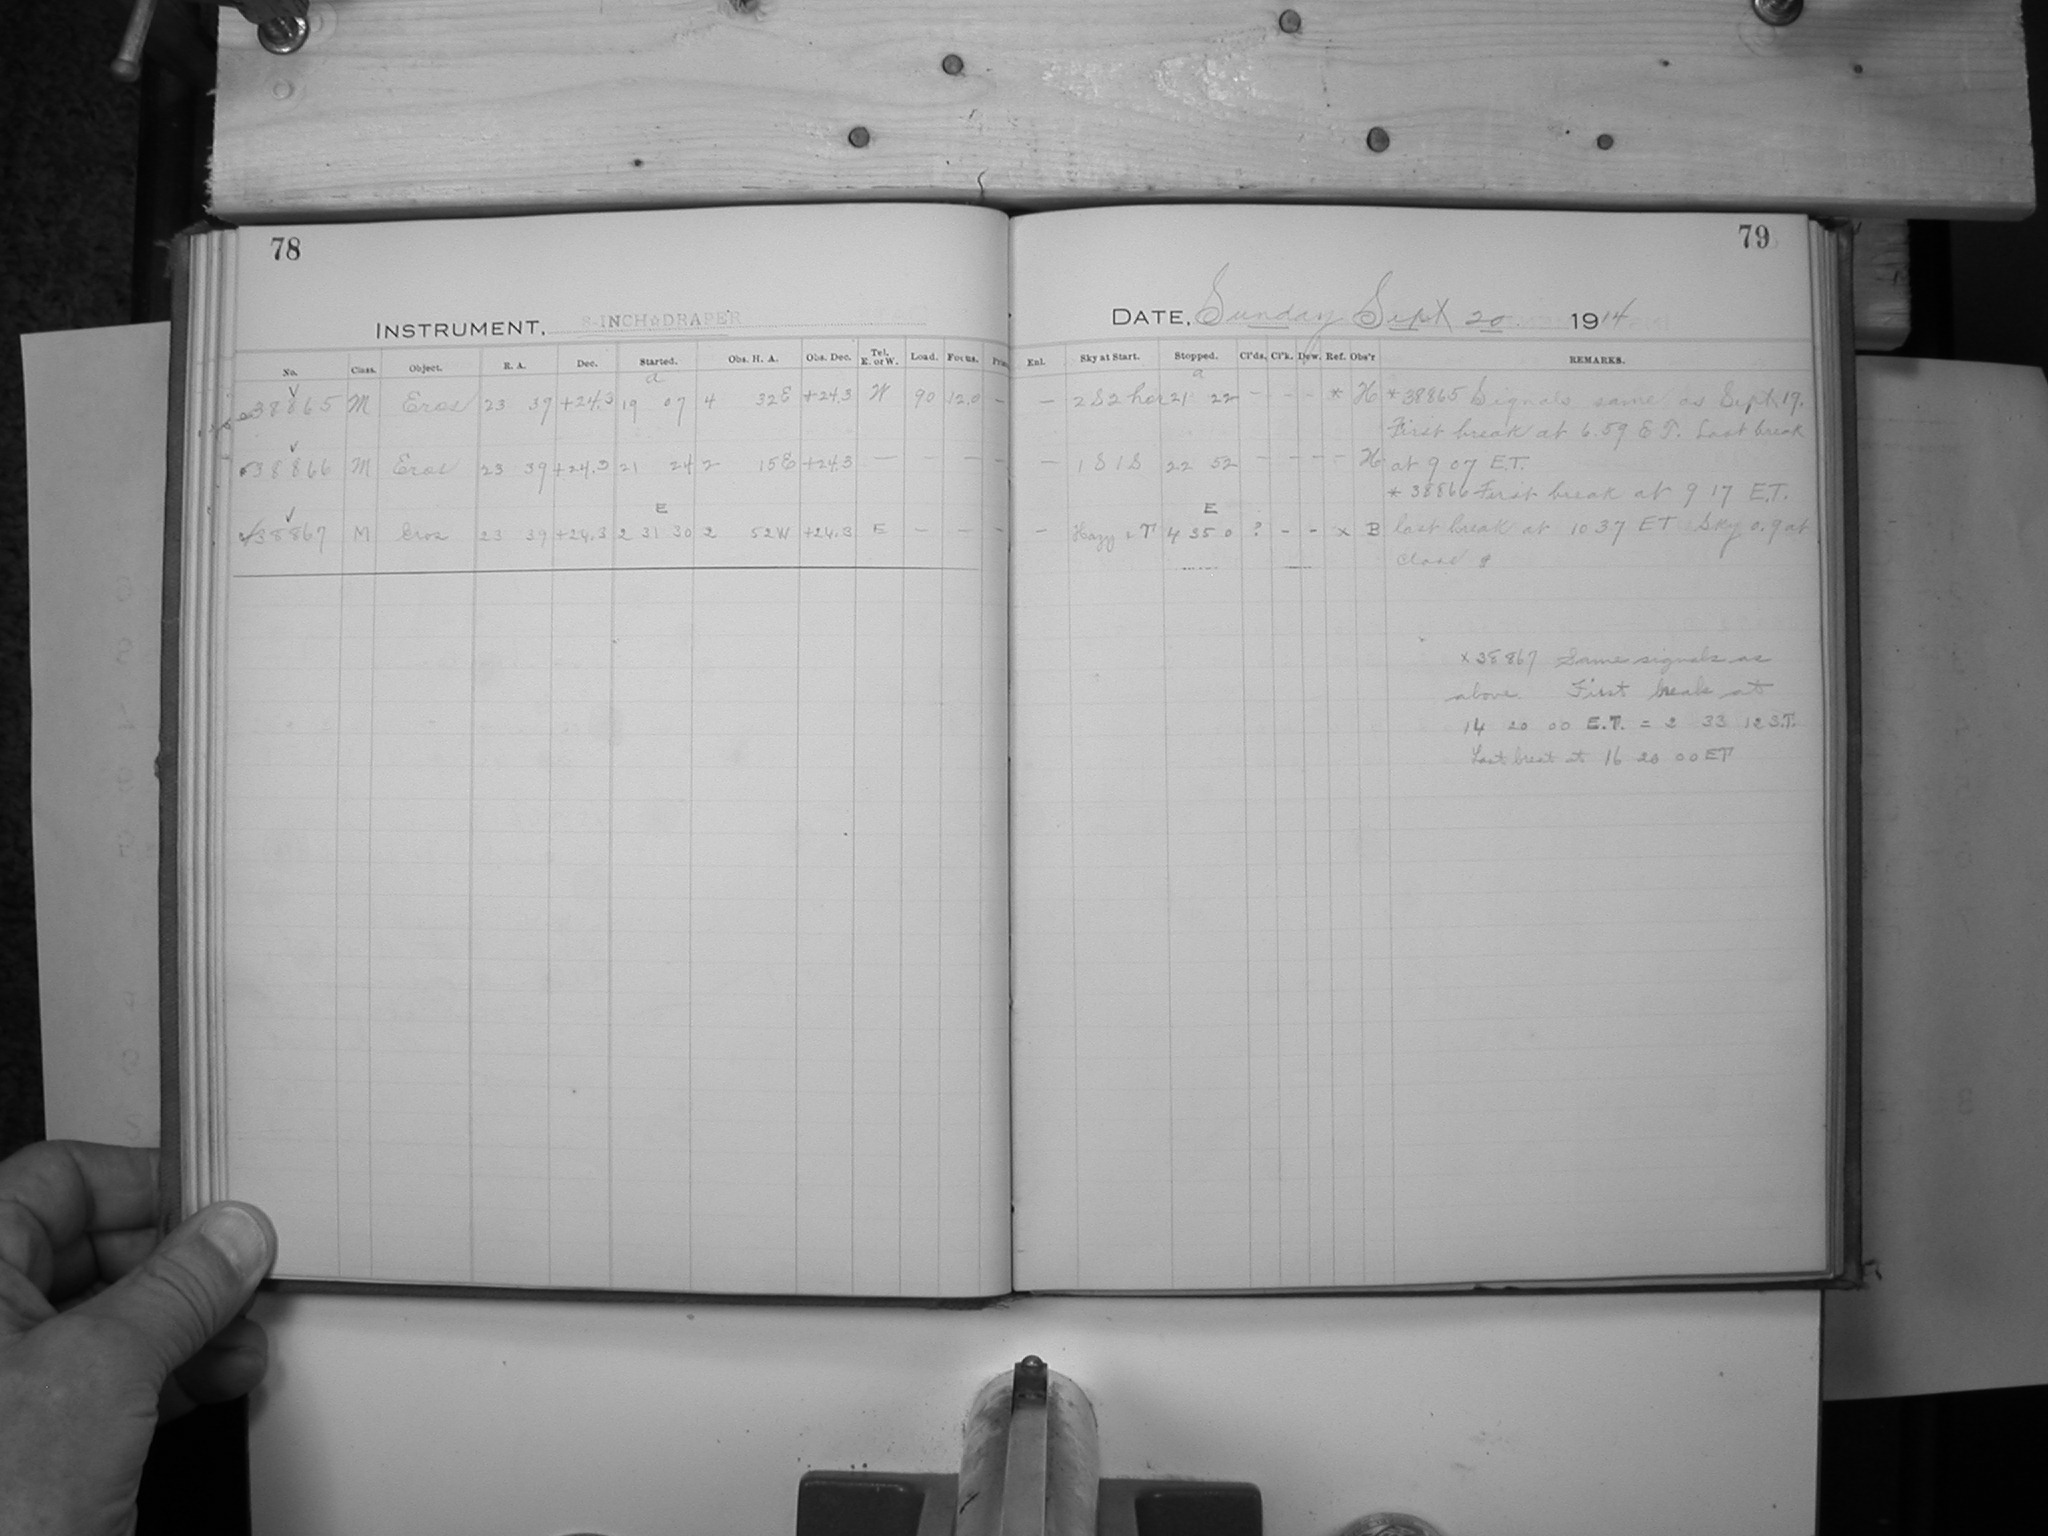 78
79
INSTRUMENT, 8-INCH DRAPER
DATE, Sunday Sept 20 1914
No. Class. Object. R. A. Dec. Started. Obs. H. A. Obs. Dec. Tel. E. or W. Load. Focus.
Enl. Sky at Start. Stopped. Cl'ds. Cl'k. Dew. Ref. Obs'r REMARKS.
a
a
38865 M Eros 23 39 +24.3 19 07 4 32E +24.3 W 90 12.0 –
– 2S2 hor 21 22 – – – * H * 38865 Signals same as Sept 19.
First break at 6.59 E.T. Last break
38866 M Eros 23 39 +24.3 21 24 2 15E +24.3 – – – –
– 1S1S 22 52 – – – – H at 9 07 E.T.
* 38866 First break at 9 17 E.T.
E
E
38867 M Eros 23 39 +24.3 2 31 30 2 52W +24.3 E – – –
– Hazy 4 35 0 ? – – x B last break at 10 37 ET Sky 0.9 at
close
x 38867 Same signals as
above. First break at
14 20 00 E.T. = 2 33 12 S.T.
Last break at 16 20 00 ET